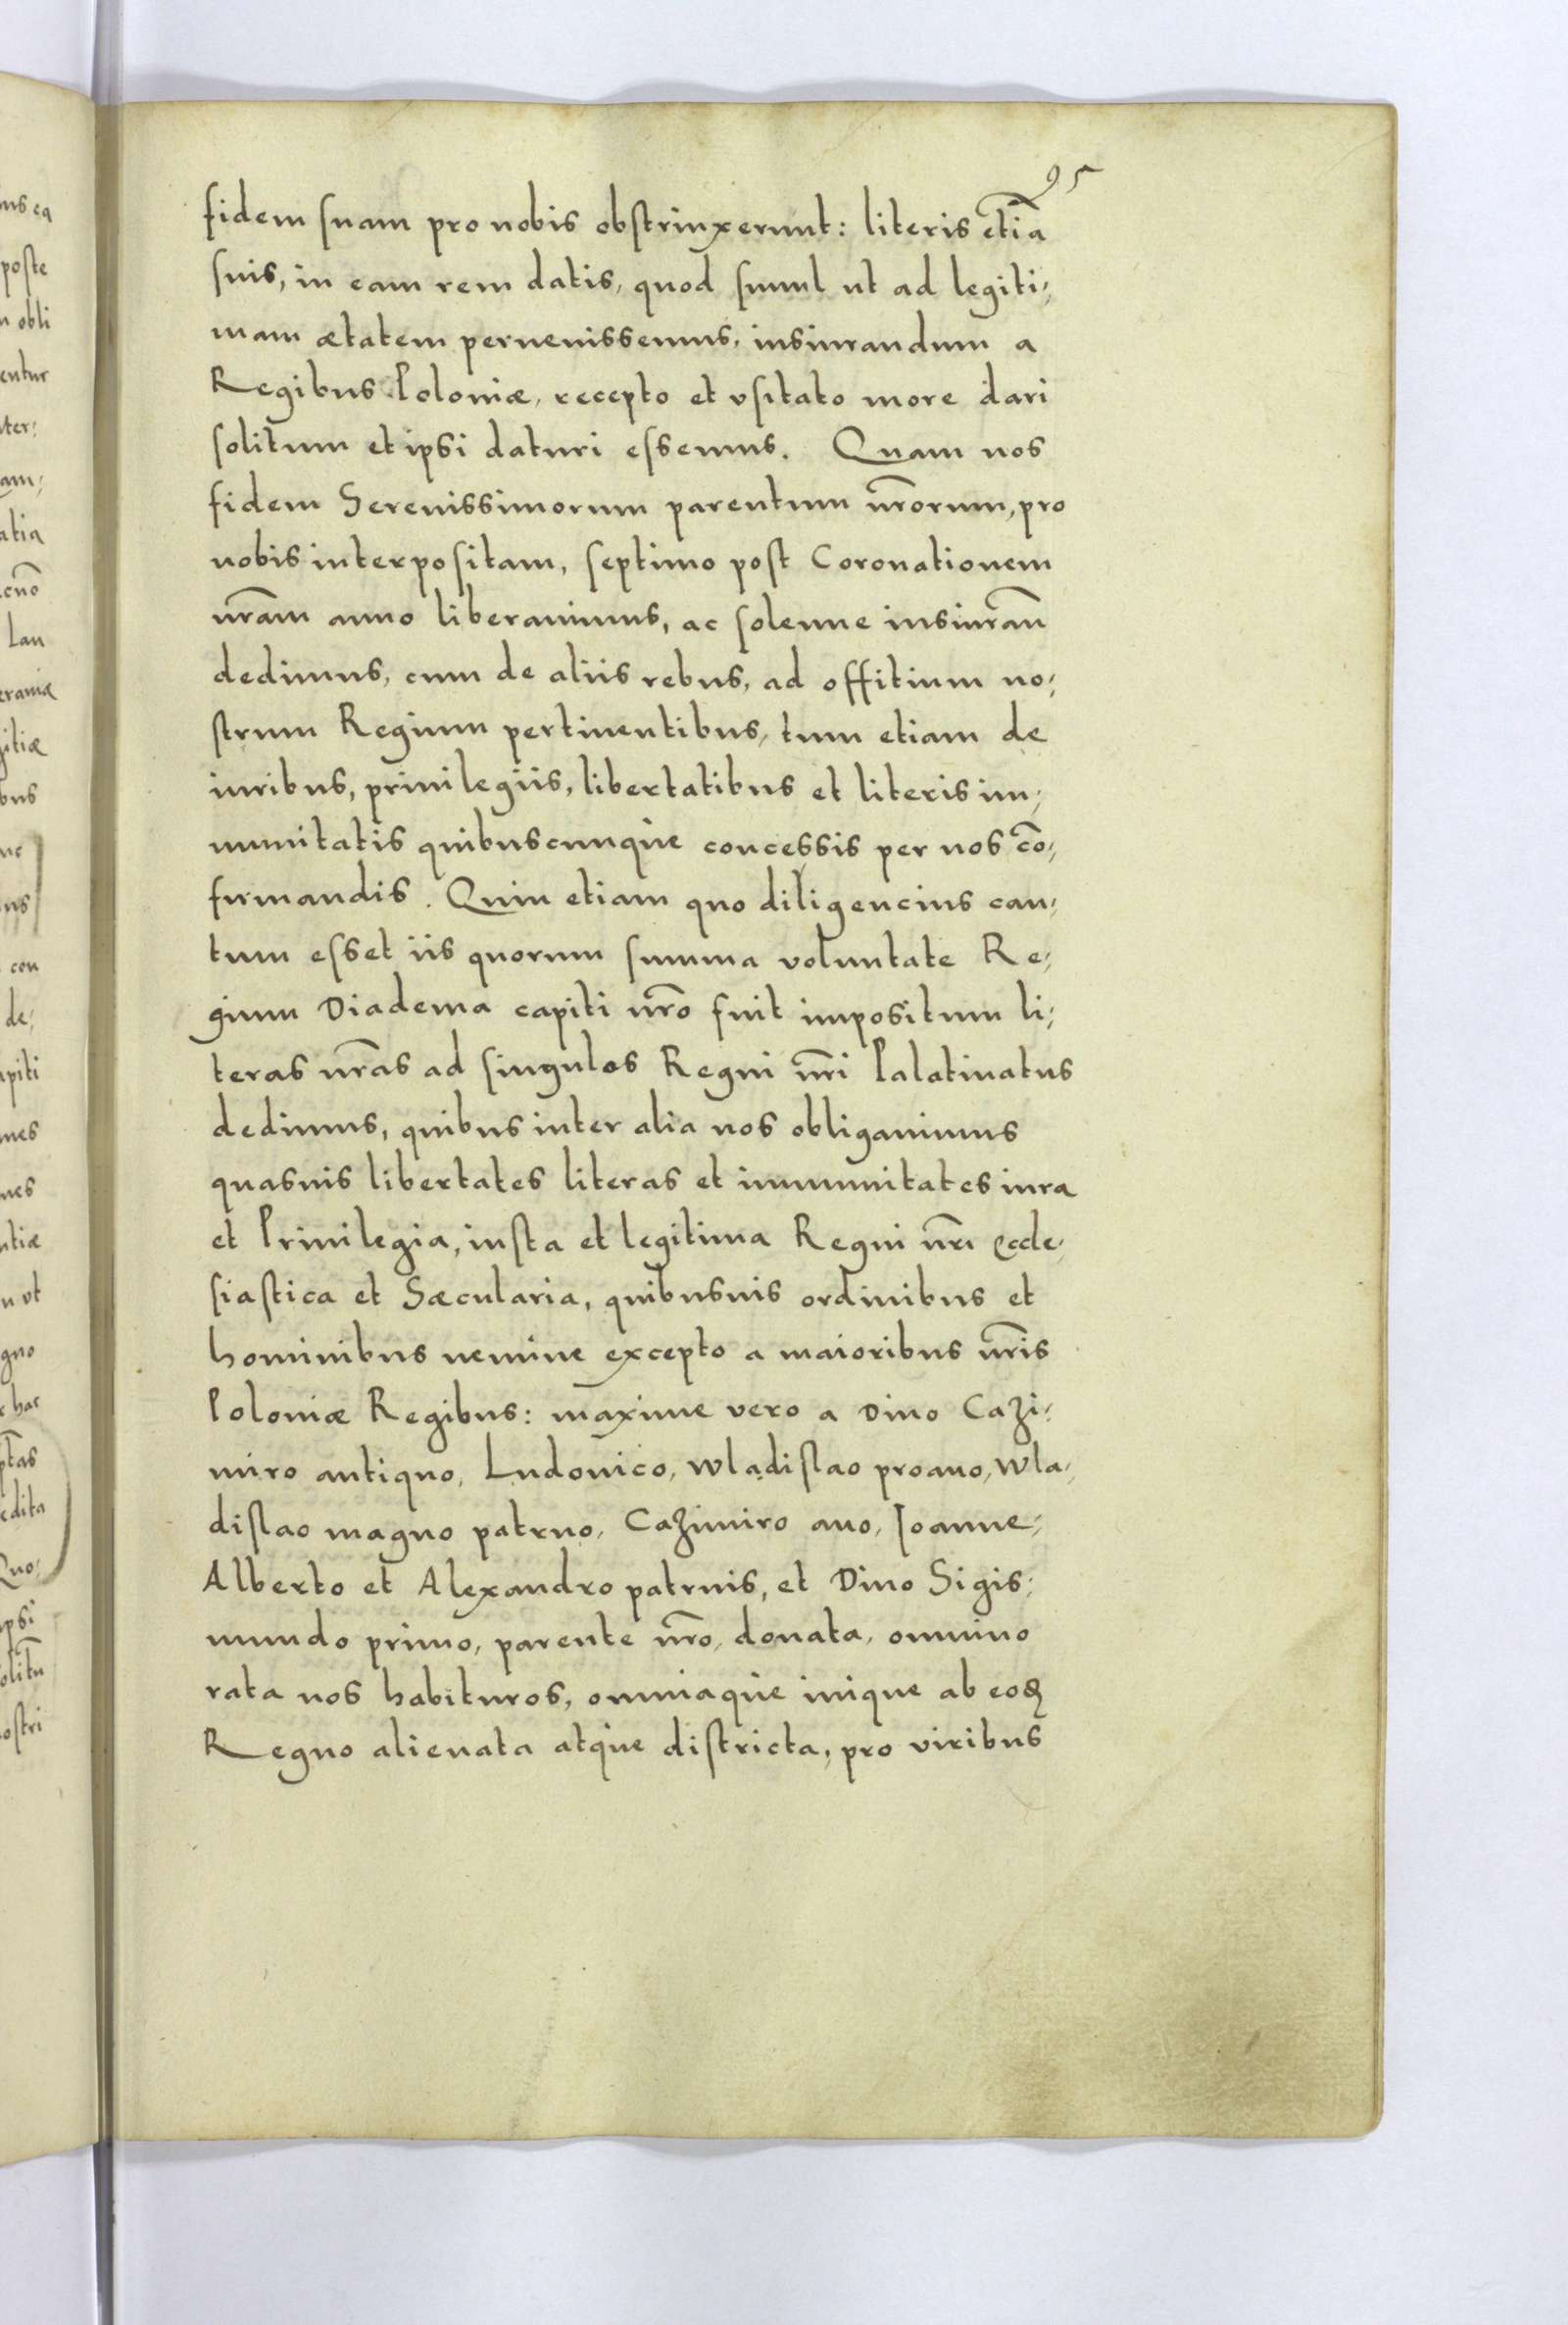 95
fidem suam pro nobis obstrinxerunt: literis etiā
suis, in eam rem datis, quod simul ut ad legiti,
mam ætatem peruenissemus, iusiurandum a
Regibus Poloniæ, recepto et vsitato more dari
solitum et ipsi daturi essemus. Quam nos
fidem Serenissimorum parentum nr̄orum, pro
nobis interpositam, septimo post Coronationem
nr̄am anno liberauimus, ac solenne iusiurān
dedimus, cum de aliis rebus, ad offitium no,
strum Regium pertinentibus, tum etiam de
iuribus, priuilegiis, libertatibus et literis im,
munitatis quibuscunque concessis per nos cō,
firmandis. Quin etiam quo diligencius cau,
tum esset iis quorum summa voluntate Re,
gium Diadema capiti nr̄o fuit impositum li,
teras nr̄as ad singulos Regni nr̄i Palatinatus
dedimus, quibus inter alia nos obligauimus
quasuis libertates literas et immunitates iura
et Priuilegia, iusta et legitima Regni nr̄i eccle,
siastica et Sæcularia, quibusuis ordinibus et
hominibus nemine excepto a maioribus nr̄is
Poloniæ Regibus: maxime vero a Diuo Cazi,
miro antiquo, Ludouico, Wladislao proauo, Wla,
dislao magno patruo, Cazimiro auo, Ioanne,
Alberto et Alexandro patruis, et Diuo Sigis,
mundo primo, parente nr̄o, donata, omnino
rata nos habituros, omniaque inique ab eoꝝ
Regno alienata atque districta, pro viribus
ms eq
poste
obli
entur
ter:
am,
atia
cnō
Lau
eraniæ
gitiæ
bus
uc
us
con
de,
apiti
mes
nes
ntiæ
n vt
gno
hac
ptās
edita
Quo,
ipsi
olitū
ostri